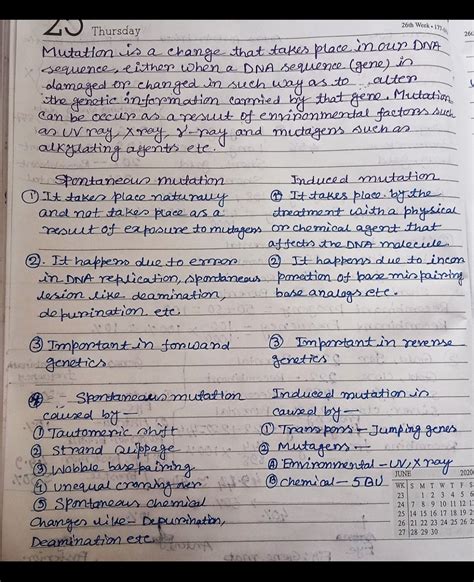 25 Thursday
26th Week • 177-
Mutation is a change that takes place in our DNA
sequence, either when a DNA sequence (gene) is
damaged or changed in such way as to alter
the genetic information carried by that gene. Mutation
can be occur as a result of environmental factors such
as UV ray, X ray, γ-ray and mutagens such as
alkylating agents etc.
Spontaneous mutation
① It takes place naturally
and not takes place as a
result of exposure to mutagens
② It happens due to error
in DNA replication, spontaneous
lesion like deamination,
depurination etc.
③ Important in forward
genetics
Induced mutation
① It takes place by the
treatment with a physical
or chemical agent that
affects the DNA molecule
② It happens due to incor
poration of base mispairing
base analogs etc.
③ Important in reverse
genetics
④ Spontaneous mutation
caused by —
① Tautomeric shift
② Strand slippage
③ Wobble base pairing
④ Unequal crossing over
⑤ Spontaneous chemical
Changes like - Depurination,
Deamination etc.
Induced mutation is
caused by —
① Transposons - Jumping genes
② Mutagens —
Ⓐ Environmental - UV, X ray
Ⓑ Chemical - 5BU
JUNE 2020
WK S M T W T F S
23 1 2 3 4 5 6
24 7 8 9 10 11 12 1
25 14 15 16 17 18 19 2
26 21 22 23 24 25 26 2
27 28 29 30